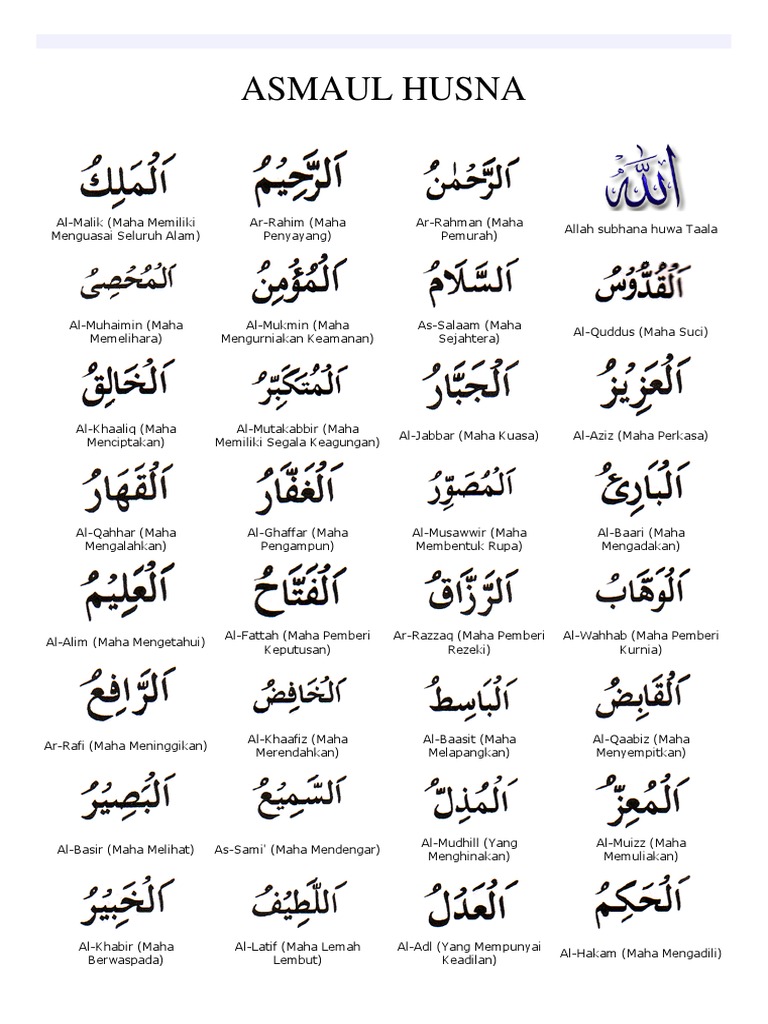 ASMAUL HUSNA
اَللّٰهُ
Allah subhana huwa Taala
اَلرَّحْمٰنُ
Ar-Rahman (Maha
Pemurah)
اَلرَّحِيْمُ
Ar-Rahim (Maha
Penyayang)
اَلْمَلِكُ
Al-Malik (Maha Memiliki
Menguasai Seluruh Alam)
اَلْقُدُّوْسُ
Al-Quddus (Maha Suci)
اَلسَّلَامُ
As-Salaam (Maha
Sejahtera)
اَلْمُؤْمِنُ
Al-Mukmin (Maha
Mengurniakan Keamanan)
اَلْمُحْصِىُ
Al-Muhaimin (Maha
Memelihara)
اَلْعَزِيْزُ
Al-Aziz (Maha Perkasa)
اَلْجَبَّارُ
Al-Jabbar (Maha Kuasa)
اَلْمُتَكَبِّرُ
Al-Mutakabbir (Maha
Memiliki Segala Keagungan)
اَلْخَالِقُ
Al-Khaaliq (Maha
Menciptakan)
اَلْبَارِئُ
Al-Baari (Maha
Mengadakan)
اَلْمُصَوِّرُ
Al-Musawwir (Maha
Membentuk Rupa)
اَلْغَفَّارُ
Al-Ghaffar (Maha
Pengampun)
اَلْقَهَارُ
Al-Qahhar (Maha
Mengalahkan)
اَلْوَهَّابُ
Al-Wahhab (Maha Pemberi
Kurnia)
اَلرَّزَّاقُ
Ar-Razzaq (Maha Pemberi
Rezeki)
اَلْفَتَّاحُ
Al-Fattah (Maha Pemberi
Keputusan)
اَلْعَلِيْمُ
Al-Alim (Maha Mengetahui)
اَلْقَابِضُ
Al-Qaabiz (Maha
Menyempitkan)
اَلْبَاسِطُ
Al-Baasit (Maha
Melapangkan)
اَلْخَافِضُ
Al-Khaafiz (Maha
Merendahkan)
اَلرَّافِعُ
Ar-Rafi (Maha Meninggikan)
اَلْمُعِزُّ
Al-Muizz (Maha
Memuliakan)
اَلْمُذِلُّ
Al-Mudhill (Yang
Menghinakan)
اَلسَّمِيْعُ
As-Sami' (Maha Mendengar)
اَلْبَصِيْرُ
Al-Basir (Maha Melihat)
اَلْحَكِمُ
Al-Hakam (Maha Mengadili)
اَلْعَدْلُ
Al-Adl (Yang Mempunyai
Keadilan)
اَللَّطِيْفُ
Al-Latif (Maha Lemah
Lembut)
اَلْخَبِيْرُ
Al-Khabir (Maha
Berwaspada)